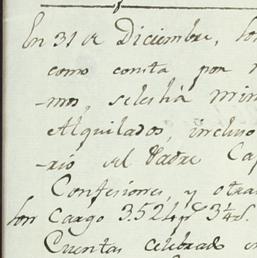 En 31 de Diciembre, 
como consta por
-mos, seles há
Alquilados, incluso
-rio del Padre Cap
Confesiones, y otra
son Cargo 3524 p.s 3¼ r.s
Cuentas celebrad